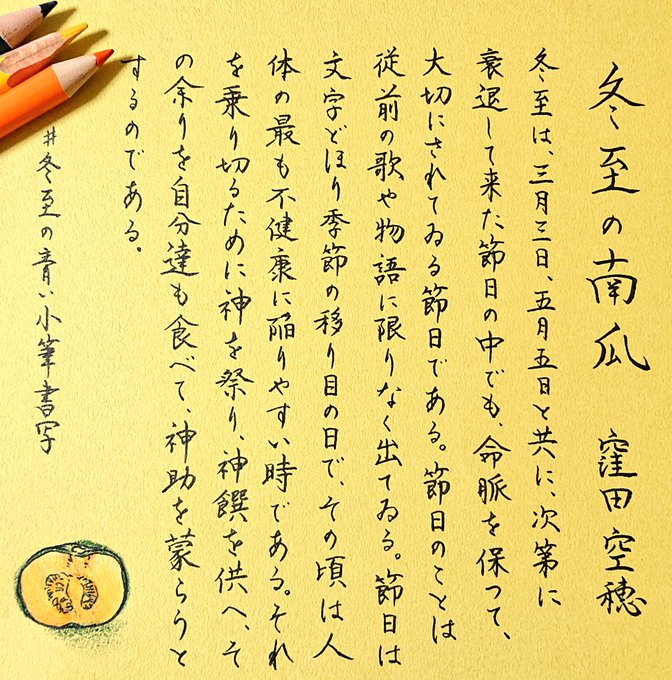 冬至の南瓜　窪田空穂
冬至は、三月三日、五月五日と共に、次第に
衰退して来た節日の中でも、命脈を保つて、
大切にされてゐる節日である。節日のことは
従前の歌や物語に限りなく出てゐる。節日は
文字どほり季節の移り目の日で、その頃は人
体の最も不健康に陥りやすい時である。それ
を乗り切るために神を祭り、神饌を供へ、そ
の余りを自分達も食べて、神助を蒙らうと
するのである。
#冬至の青い小筆書写